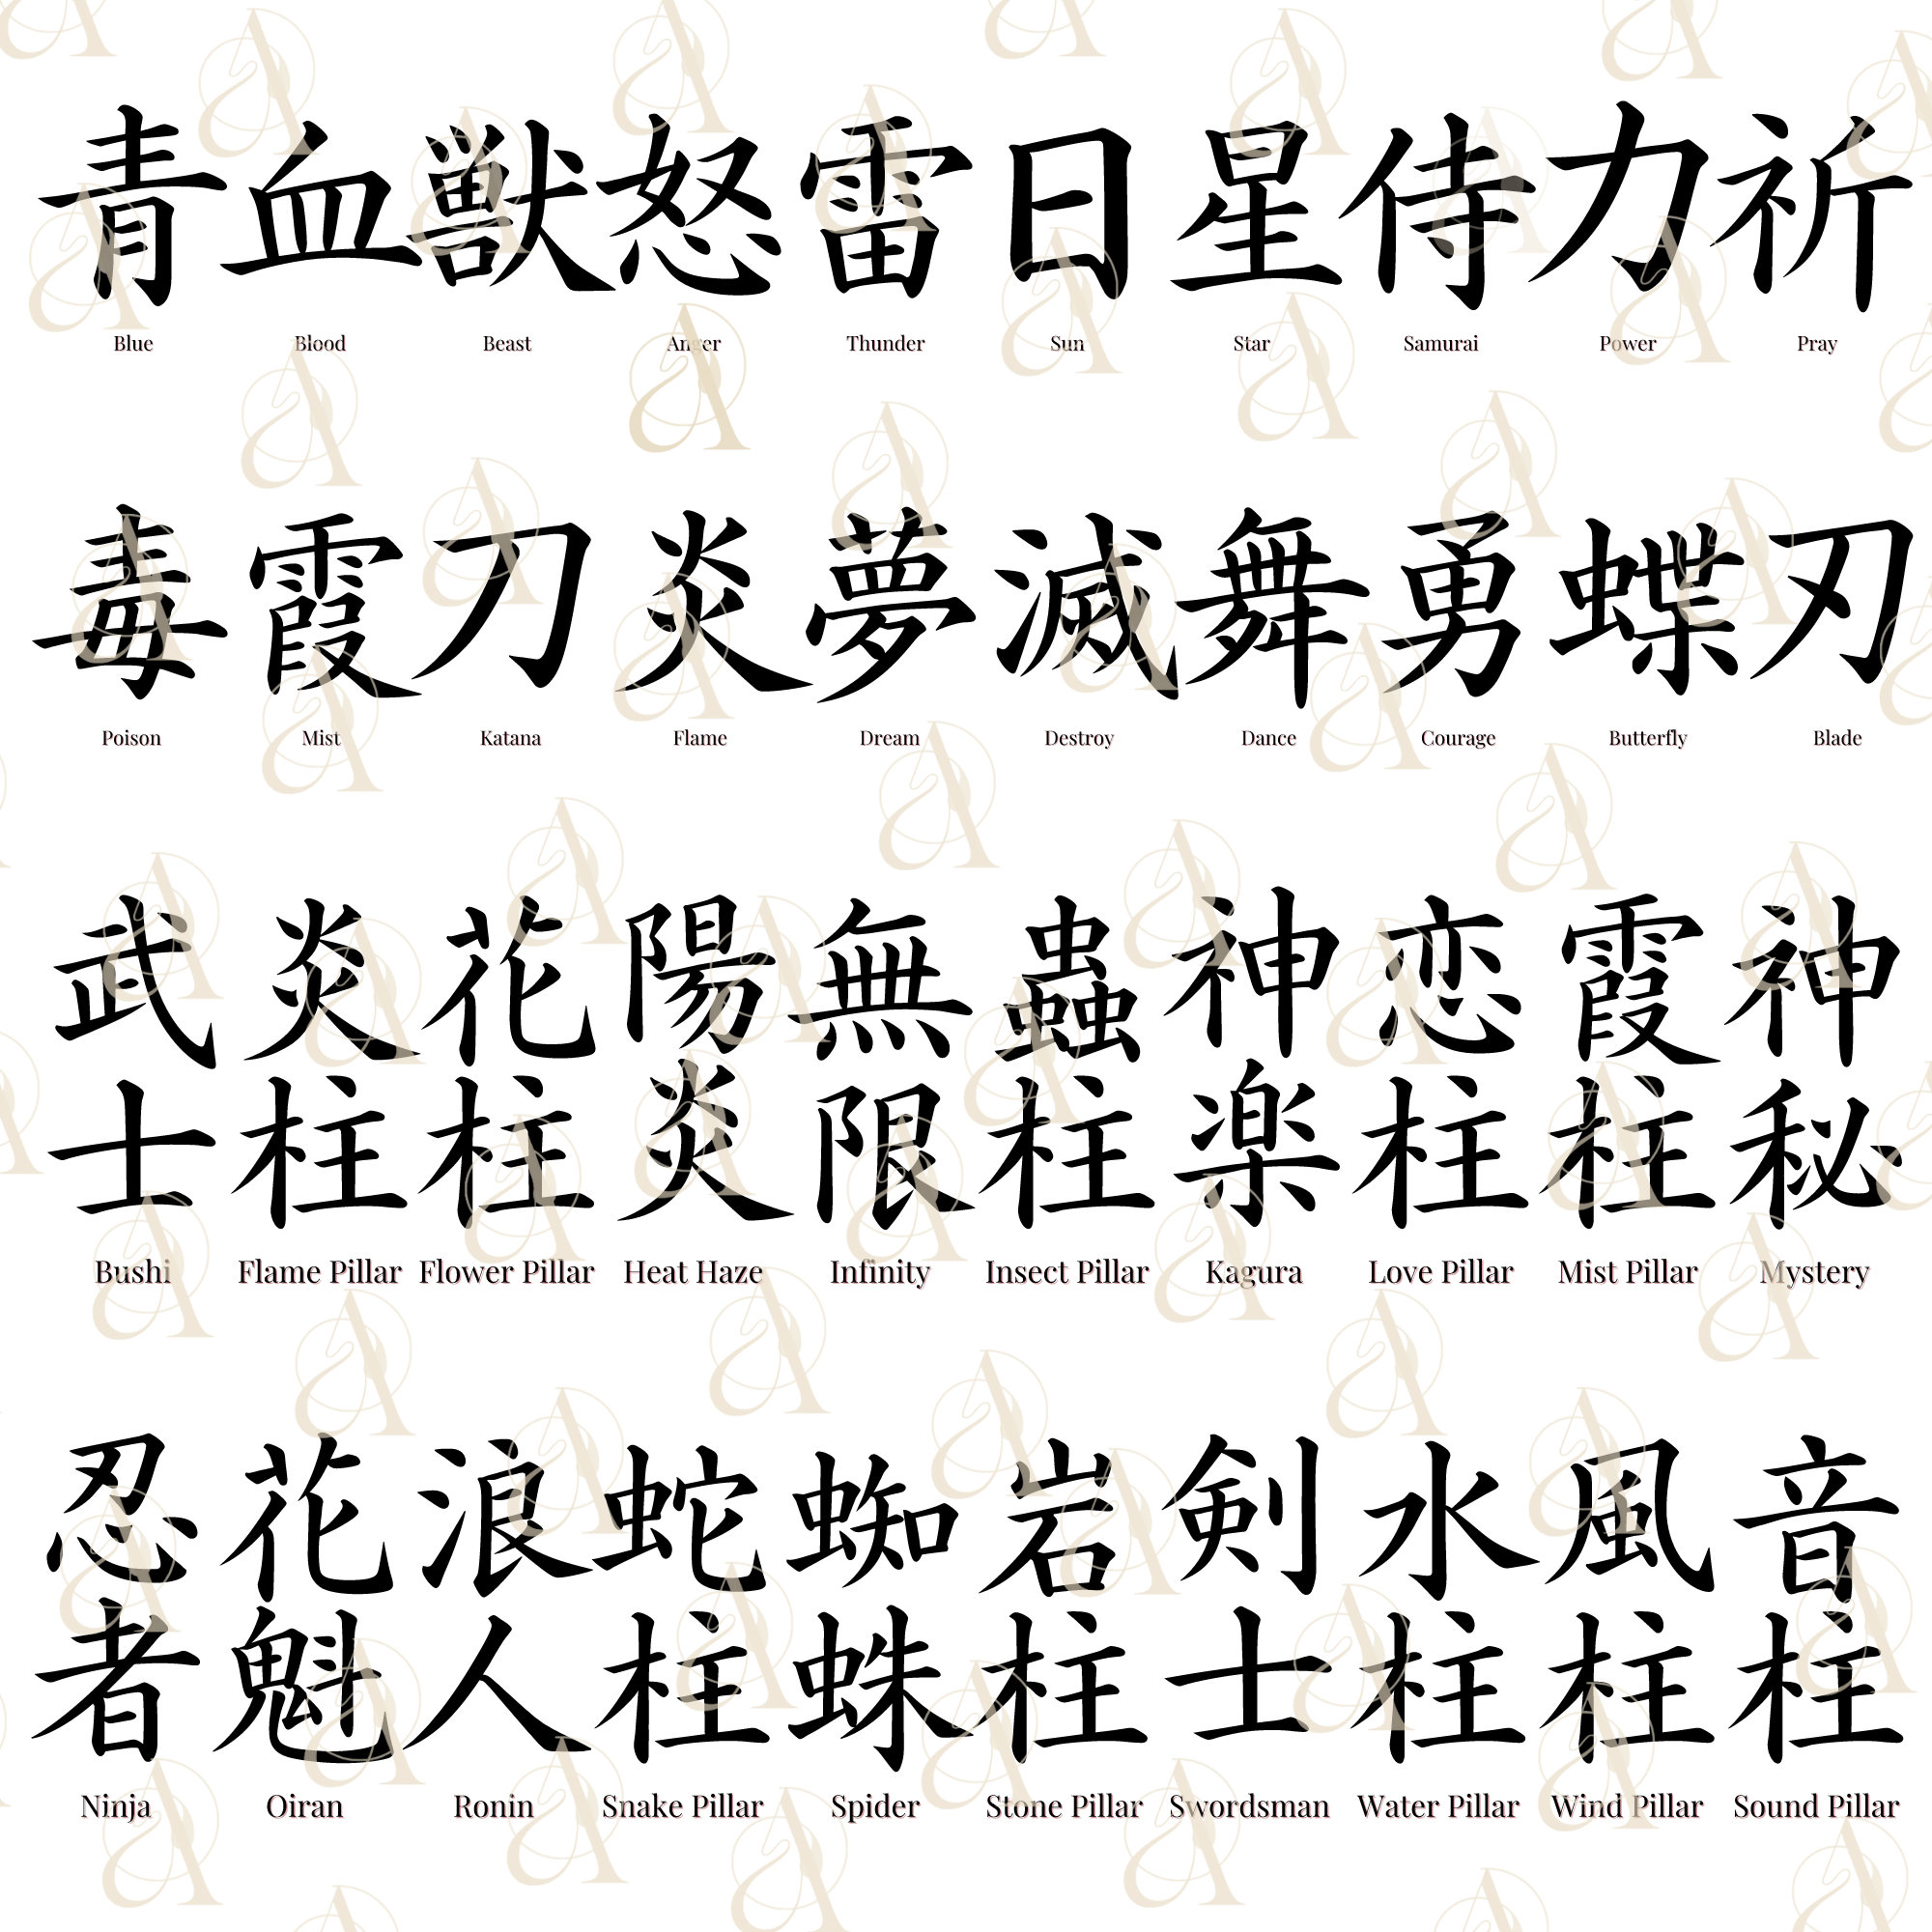 青 血 獣 怒 雷 日 星 侍 力 祈
Blue Blood Beast Anger Thunder Sun Star Samurai Power Pray
毒 霞 刀 炎 夢 滅 舞 勇 蝶 刃
Poison Mist Katana Flame Dream Destroy Dance Courage Butterfly Blade
武 炎 花 陽 無 蟲 神 恋 霞 神
士 柱 柱 炎 限 柱 楽 柱 柱 秘
Bushi Flame Pillar Flower Pillar Heat Haze Infinity Insect Pillar Kagura Love Pillar Mist Pillar Mystery
忍 花 浪 蛇 蜘 岩 剣 水 風 音
者 魁 人 柱 蛛 柱 士 柱 柱 柱
Ninja Oiran Ronin Snake Pillar Spider Stone Pillar Swordsman Water Pillar Wind Pillar Sound Pillar